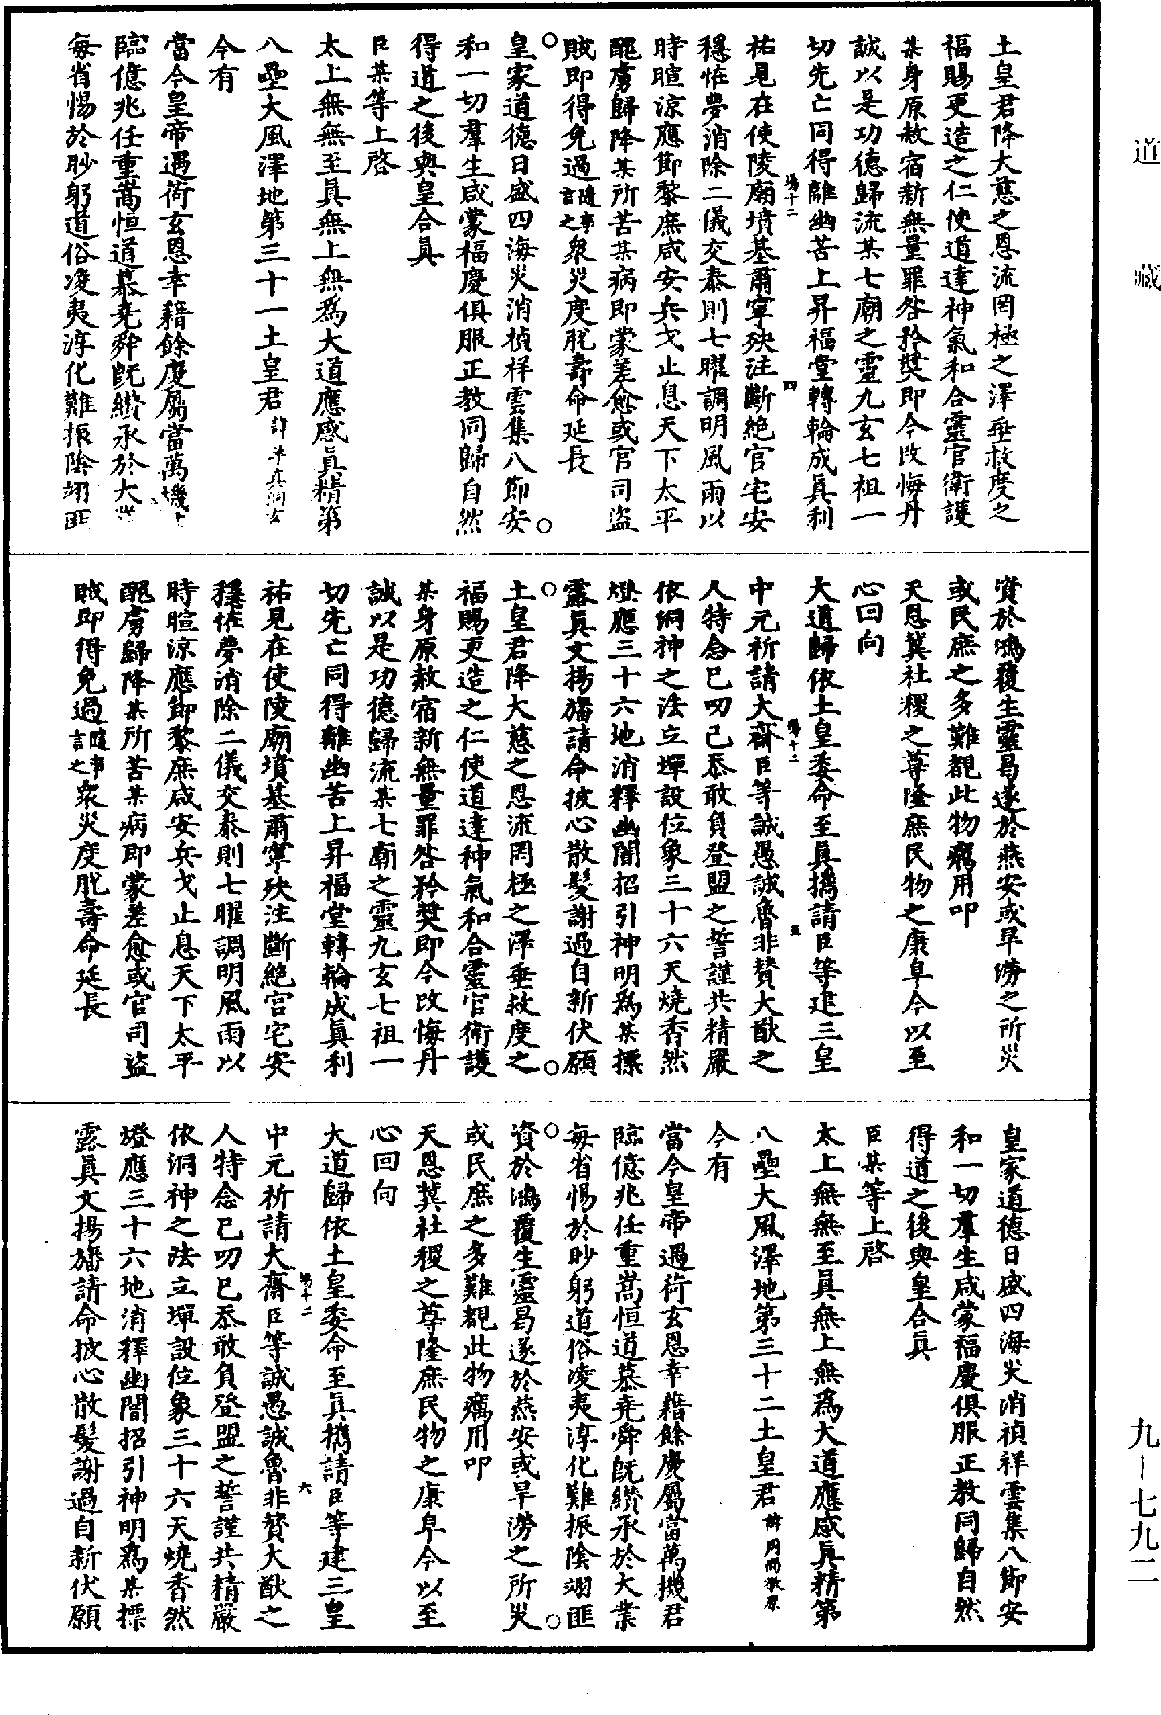 土皇君降大慈之恩流罔極之澤垂救度之
福賜更造之仁使道達神氣和合靈官衛護
某身原赦宿新無量罪咎矜獎即今改悔丹
誠以是功德歸流某七廟之靈九玄七祖一
切先亡同得離幽苦上昇福堂轉輪成真利
祐見在使陵廟墳基肅寧殃注斷絕官宅安
穩恠夢消除二儀交泰則七曜調明風雨以
時暄涼應節黎庶咸安兵戈止息天下太平
醜虜歸降某所苦某病即蒙差愈或官司盜
賊即得免過隨事言之衆災度脫壽命延長
皇家道德日盛四海災消禎祥雲集八節安
和一切羣生咸蒙福慶俱服正教同歸自然
得道之後與皇合真
臣某等上啓
太上無無至真無上無為大道應感真精第
八壘大風澤地第三十一土皇君
今有
當今皇帝過荷玄恩幸藉餘慶屬當萬機
臨億兆任重嵩恒道慕堯舜既纘承於大
每省惕於眇躬道俗凌夷淳化難振陰翊匪
資於鴻覆生靈曷遂於燕安或旱澇之所災
或民庶之多難覩此物癘用叩
天恩冀社稷之尊隆庶民物之康阜今以至
心回向
大道歸依土皇委命至真攜請臣等建三皇
中元祈請大齋臣等誠愚誠魯非贊大猷之
人特念已叨已忝敢負登盟之誓謹共精嚴
依洞神之法立壇設位象三十六天燒香然
燈應三十六地消釋幽闇招引神明為某摽
露真文揚旛請命披心散髮謝過自新伏願
土皇君降大慈之恩流罔極之澤垂救度之
福賜更造之仁使道達神氣和合靈官衛護
某身原赦宿新無量罪咎矜獎即今改悔丹
誠以是功德歸流某七廟之靈九玄七祖一
切先亡同得離幽苦上昇福堂轉輪成真利
祐見在使陵廟墳基肅寧殃注斷絕宮宅安
穩恠夢消除二儀交泰則七曜調明風雨以
時暄涼應節黎庶咸安兵戈止息天下太平
醜虜歸降某所苦某病即蒙差愈或官司盜
賊即得免過隨事言之衆災度脫壽命延長
皇家道德日盛四海災消禎祥雲集八節安
和一切羣生咸蒙福慶俱服正教同歸自然
得道之後與皇合真
臣某等上啓
太上無無至真無上無為大道應感真精第
八壘大風澤地第三十二土皇君
今有
當今皇帝過荷玄恩幸藉餘慶屬當萬機君
臨億兆任重嵩恒道慕堯舜既纘承於大業
每省惕於眇躬道俗凌夷淳化難振陰翊匪
資於鴻覆生靈曷遂於燕安或旱澇之所災
或民庶之多難覩此物癘用叩
天恩冀社稷之尊隆庶民物之康阜今以至
心回向
大道歸依土皇委命至真攜請臣等建三皇
中元祈請大齋臣等誠愚誠魯非贊大猷之
人特念已叨已忝敢負登盟之誓謹共精嚴
依洞神之法立壇設位象三十六天燒香然
燈應三十六地消釋幽闇招引神明為某摽
露真文揚旛請命披心散髮謝過自新伏願
道藏
九－七九二